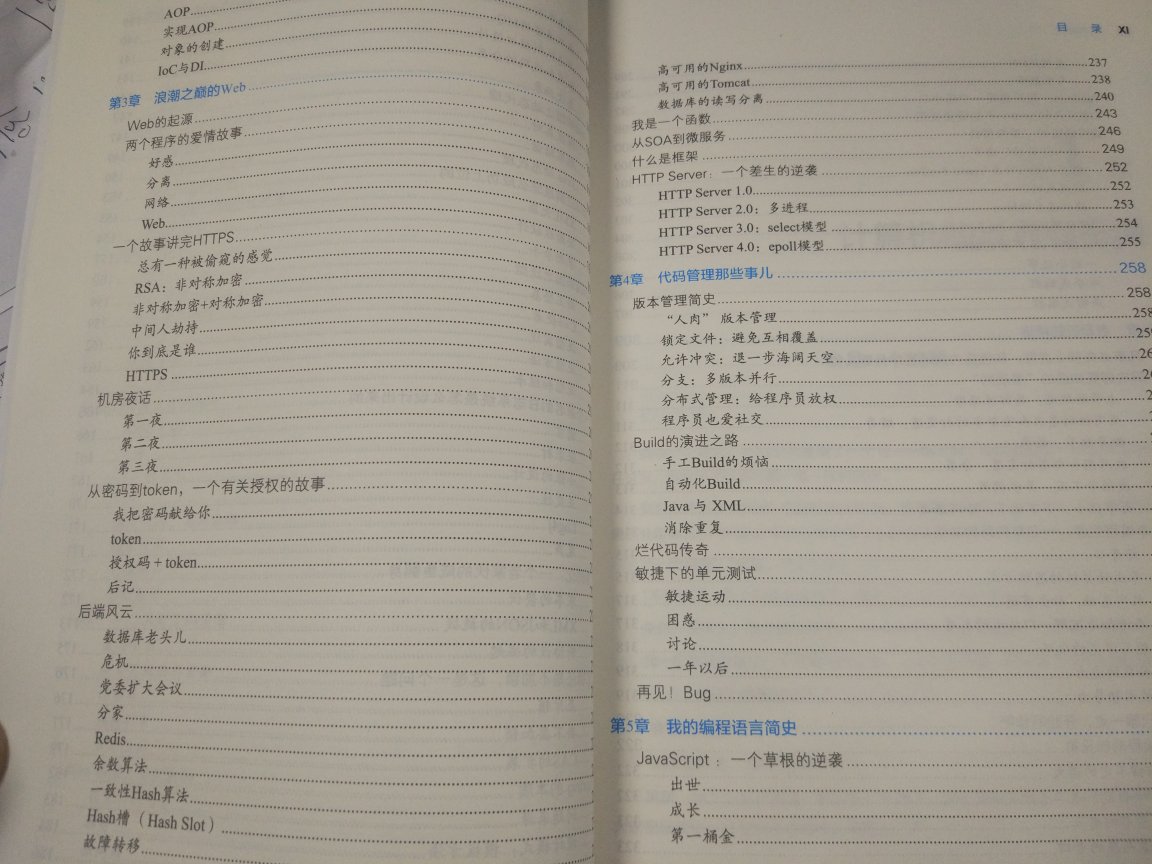 AOP
实现AOP
对象的创建
IoC与DI
第3章 浪潮之巅的Web
Web的起源
两个程序的爱情故事
好感
分离
网络
Web
一个故事讲完HTTPS
总有一种被偷窥的感觉
RSA：非对称加密
非对称加密+对称加密
中间人劫持
你到底是谁
HTTPS
机房夜话
第一夜
第二夜
第三夜
从密码到token，一个有关授权的故事
我把密码献给你
token
授权码 + token
后记
后端风云
数据库老头儿
危机
党委扩大会议
分家
Redis
余数算法
一致性Hash算法
Hash槽（Hash Slot）
故障转移
目 录 XI
高可用的Nginx 237
高可用的Tomcat 238
数据库的读写分离 240
我是一个函数 243
从SOA到微服务 246
什么是框架 249
HTTP Server：一个差生的逆袭 252
HTTP Server 1.0 252
HTTP Server 2.0：多进程 253
HTTP Server 3.0：select模型 254
HTTP Server 4.0：epoll模型 255
第4章 代码管理那些事儿 258
版本管理简史 258
“人肉” 版本管理 258
锁定文件：避免互相覆盖
允许冲突：退一步海阔天空
分支：多版本并行
分布式管理：给程序员放权
程序员也爱社交
Build的演进之路
手工Build的烦恼
自动化Build
Java 与 XML
消除重复
烂代码传奇
敏捷下的单元测试
敏捷运动
困惑
讨论
一年以后
再见！Bug
第5章 我的编程语言简史
JavaScript：一个草根的逆袭
出世
成长
第一桶金